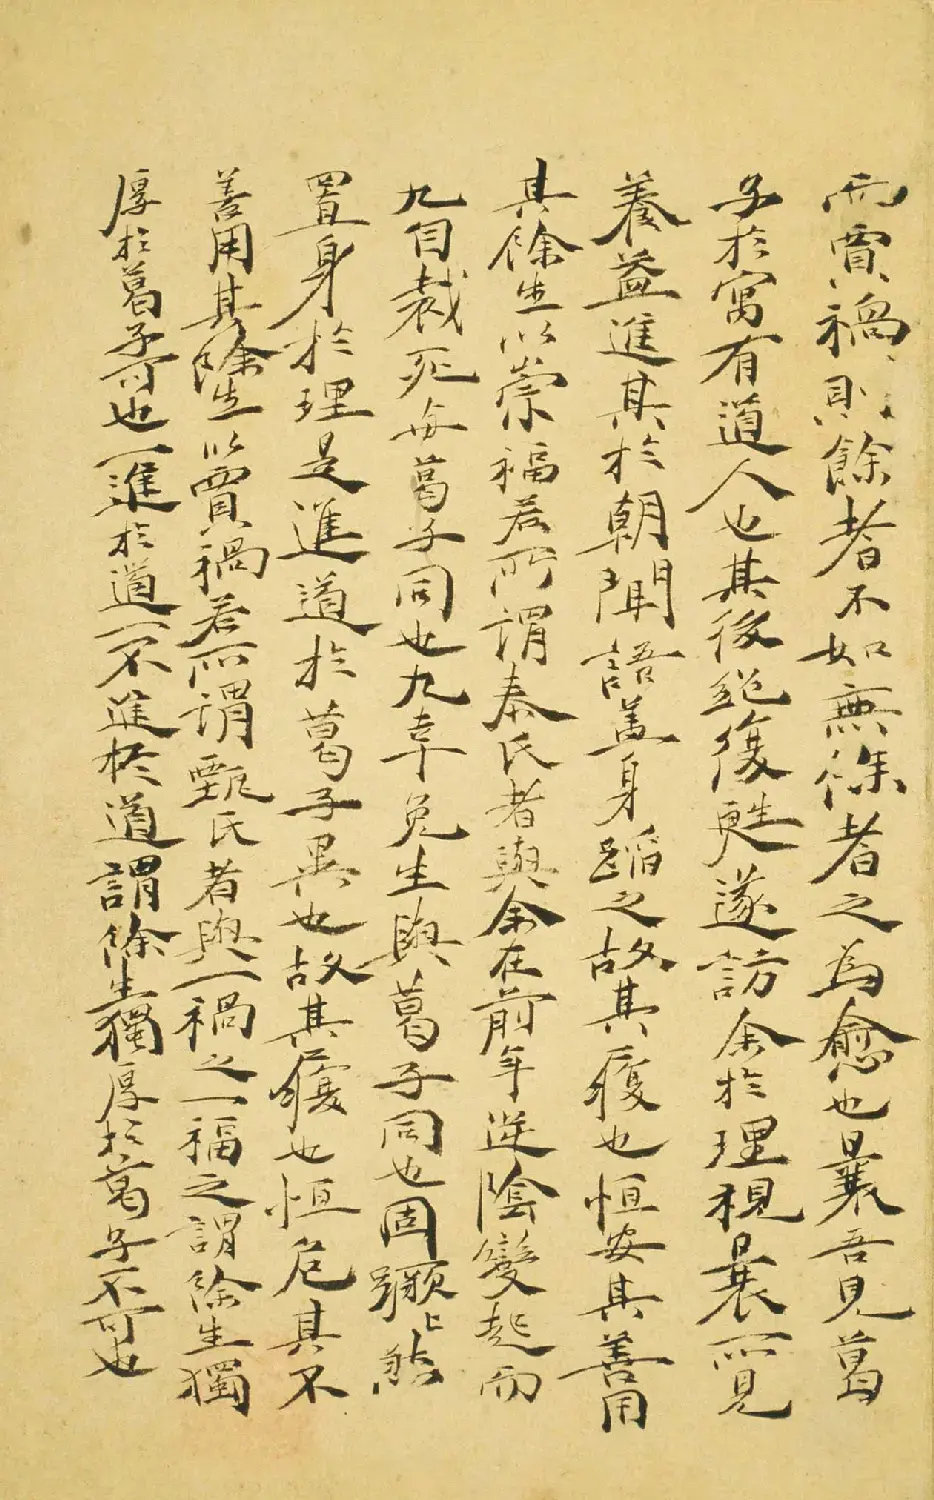 而賈禍則餘者不如無餘者之為愈也曩吾見葛
子於寓有道人也其後絕復甦遂訪余於理視曩所見
養益進其於朝聞語蓋身蹈之故其復也恒安其善用
其餘生以崇福若所謂秦氏者與余在前年逆陰變起而
九自裁死每葛子同也九幸免生與葛子同也固
置身於理是進道於葛子異也故其復也恒危其不
善用其餘生以賈禍若所謂甄氏者與一禍之一福之謂餘生獨
厚於葛子可也一進於道一不進於道謂餘生獨厚於葛子不可也